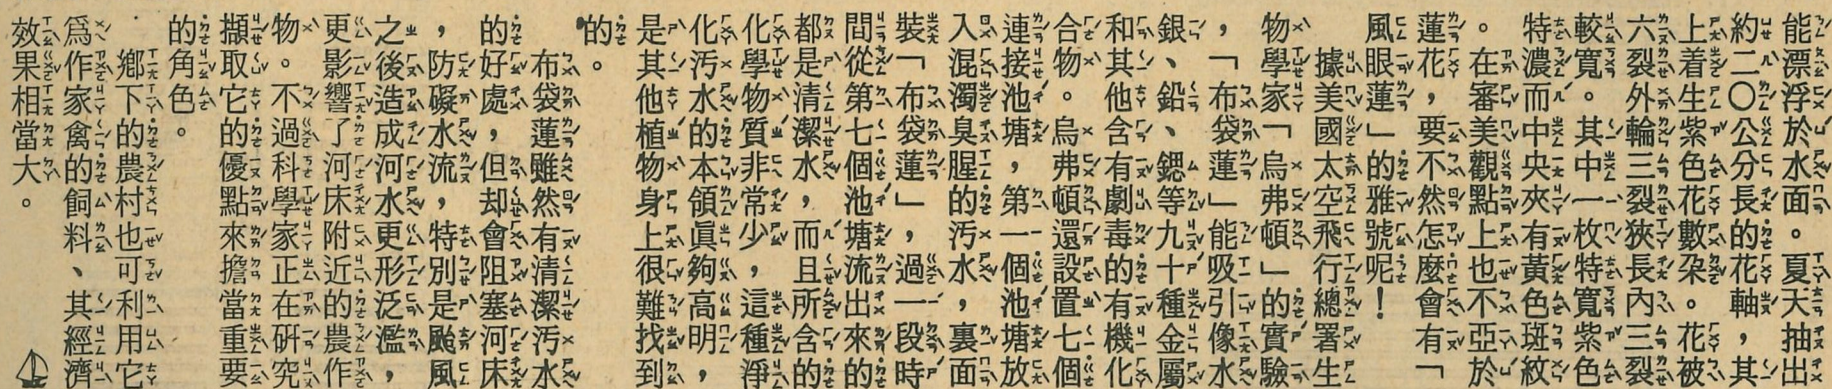 能漂浮於水面。夏天抽出
約二〇公分長的花軸，其
上着生紫色花數朶。花被
六裂外輪三裂狹長內三裂
較寬。其中一枚特寬紫色
特濃而中央夾有黃色斑紋
。在審美觀點上也不亞於
蓮花，要不然怎麼會有「
風眼蓮」的雅號呢！
據美國太空飛行總署生
物學家「烏弗頓」的實驗
，「布袋蓮」能吸引像水
銀、鉛、鍶等九十種金屬
和其他含有劇毒的有機化
合物。烏弗頓還設置七個
連接池塘，第一個池塘放
入混濁臭腥的污水，裏面
裝「布袋蓮」，過一段時
間從第七個池塘流出來的
都是清潔水，而且所含的
化學物質非常少，這種淨
化污水的本領眞夠高明，
是其他植物身上很難找到
的。
布袋蓮雖然有清潔污水
的好處，但却會阻塞河床
，防礙水流，特別是颱風
之後造成河水更形泛濫，
更影響了河床附近的農作
物。不過科學家正在研究
擷取它的優點來擔當重要
的角色。
鄉下的農村也可利用它
爲作家禽的飼料、其經濟
效果相當大。